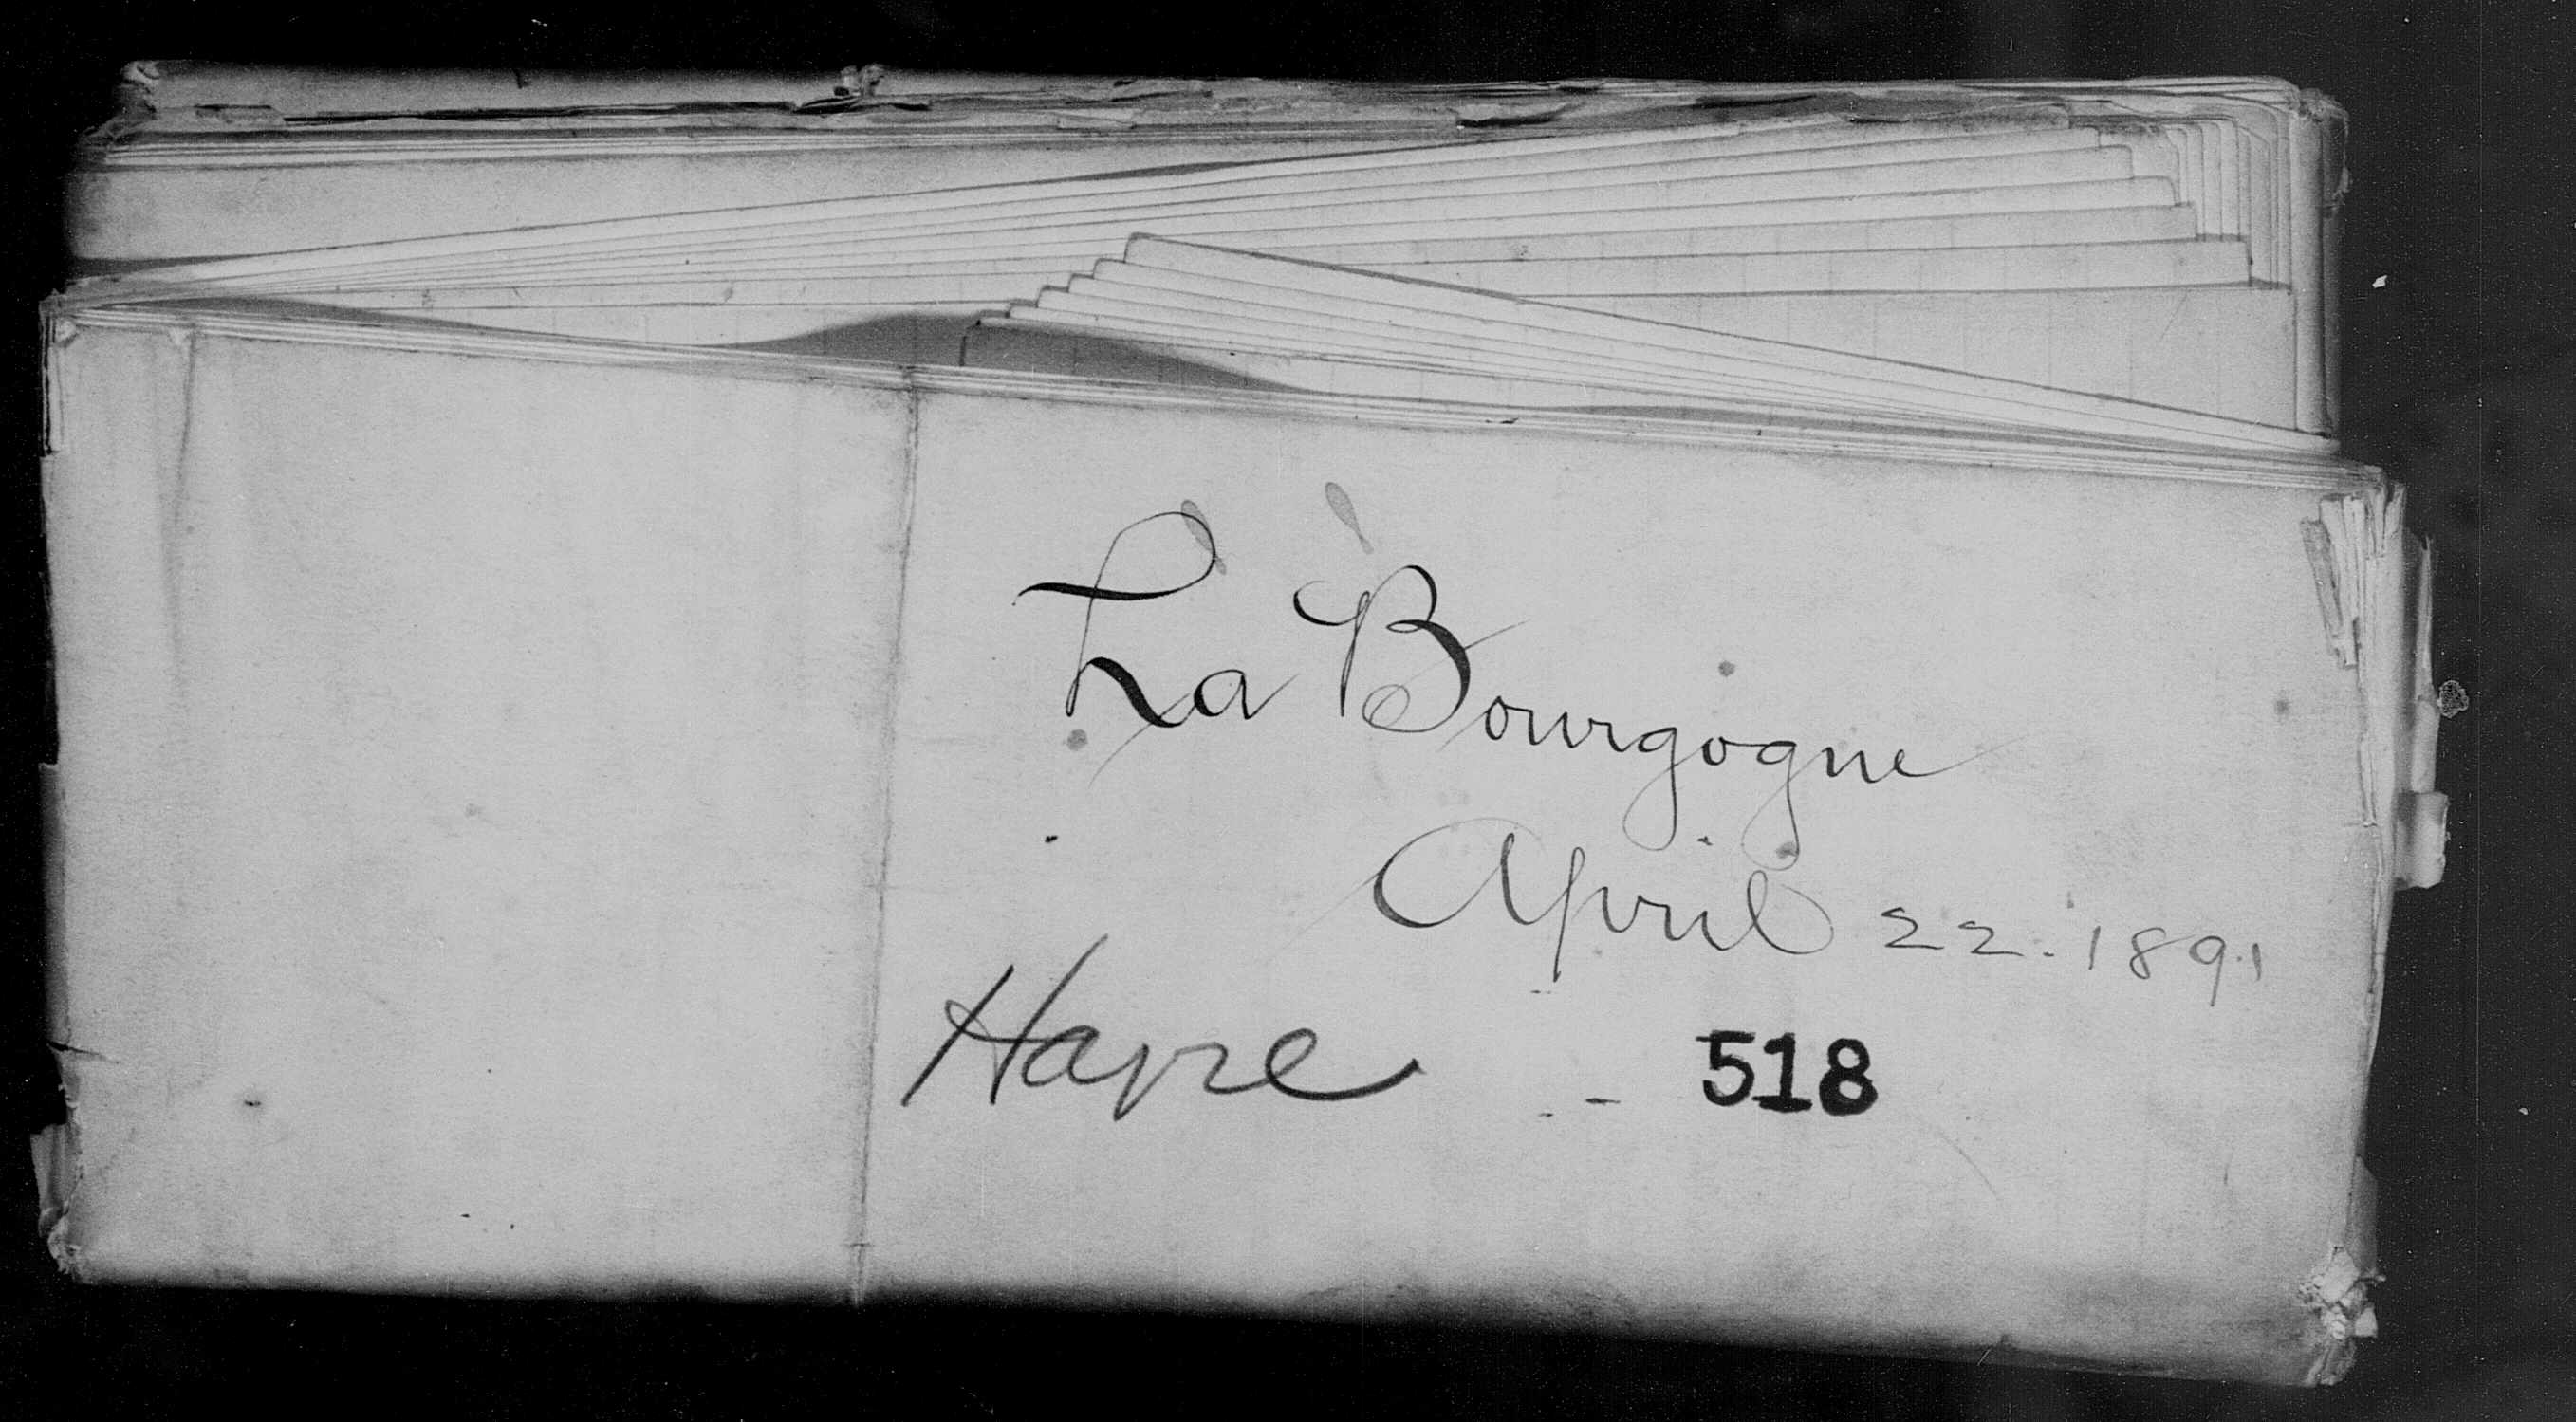 La Bourgogne
April 22. 1891
Havre 518